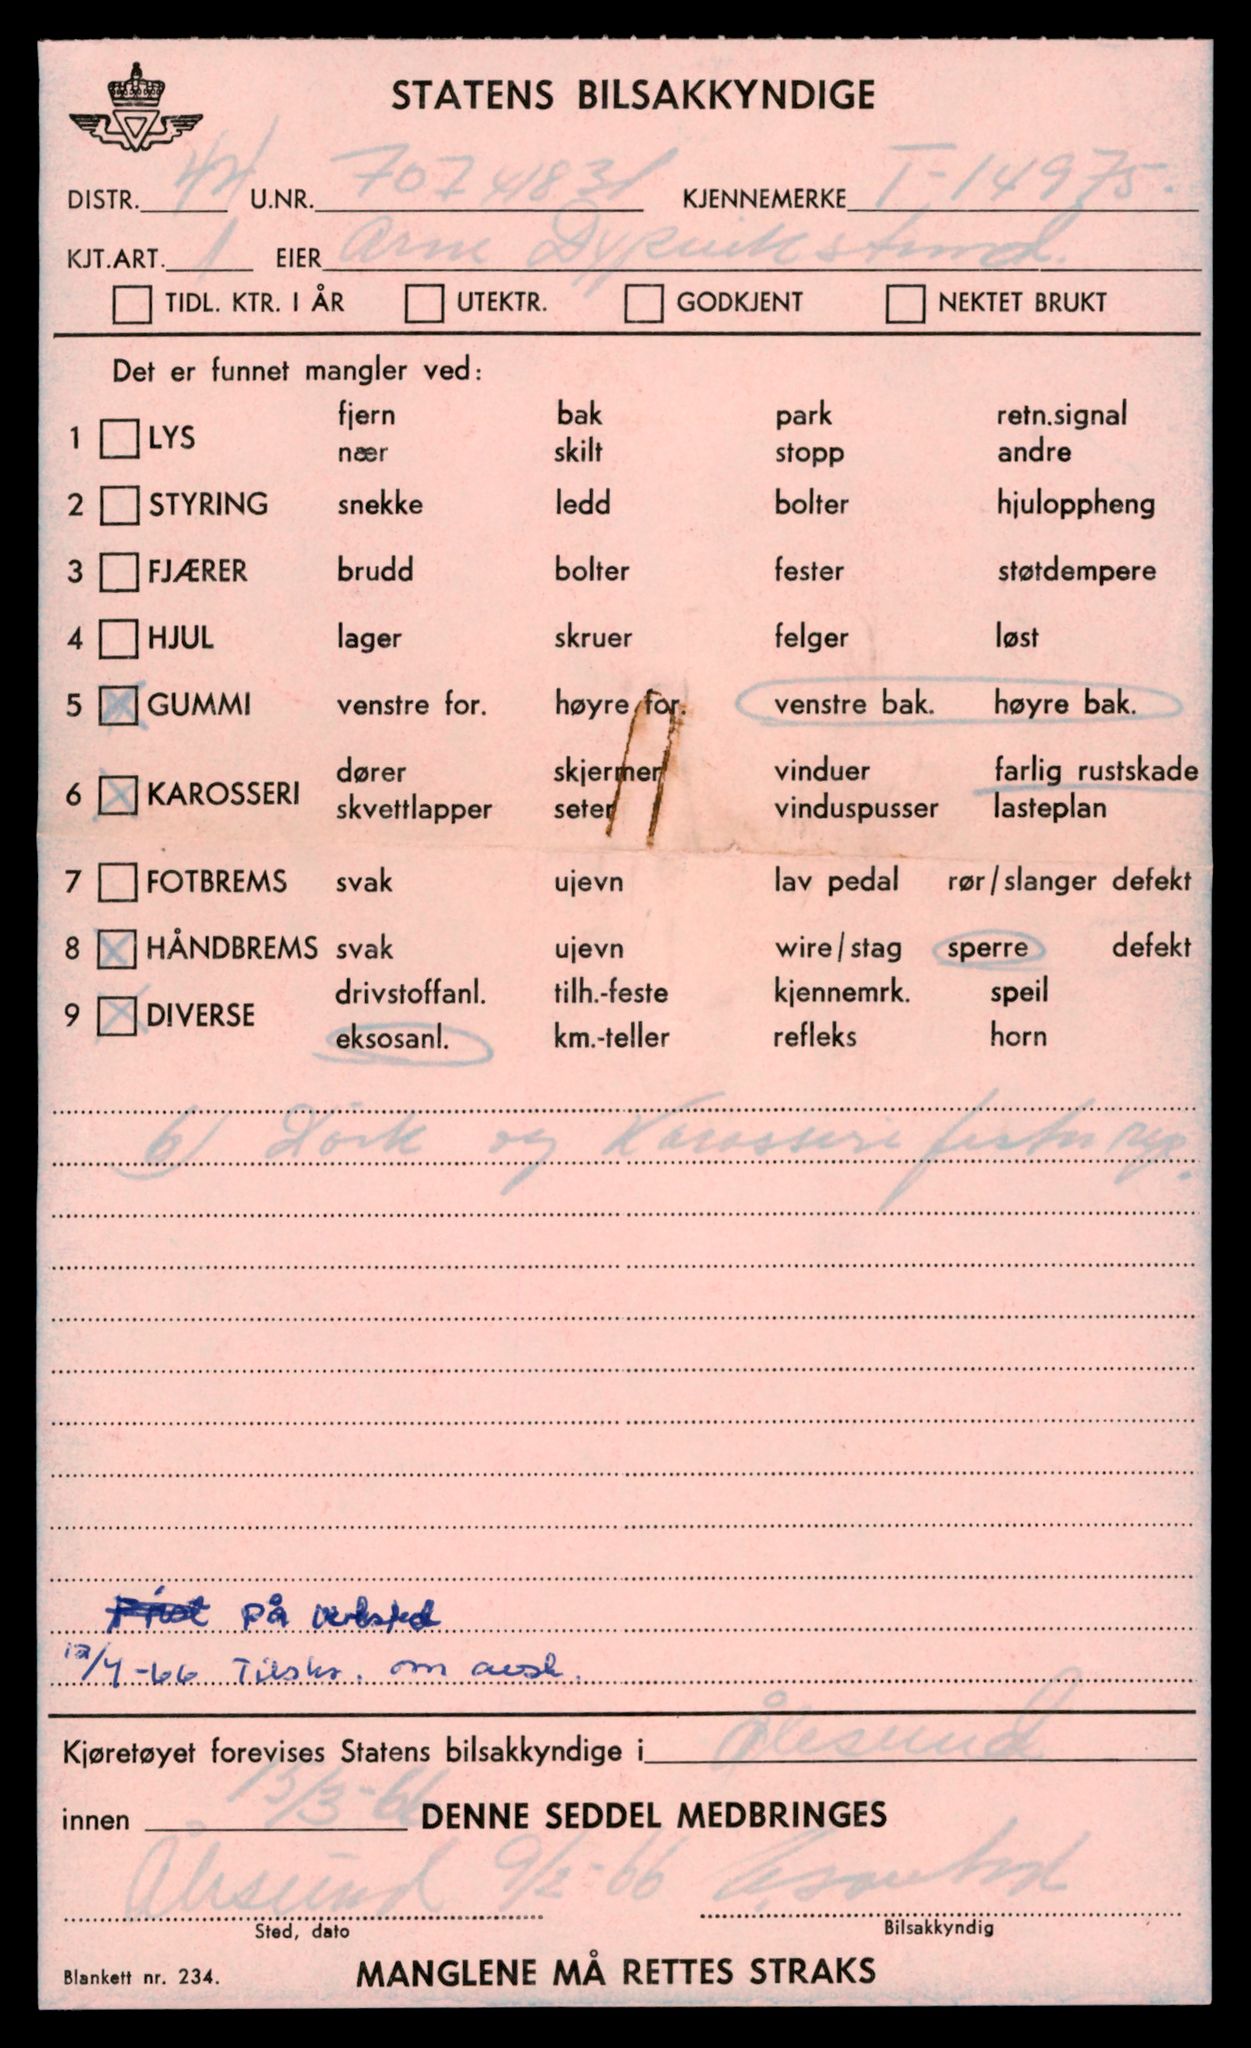 STATENS BILSAKKYNDIGE
DISTR. 44 U.NR. 7074831 KJENNEMERKE T-14975.
KJT.ART. 1 EIER Arne Dyrvikstrand.
TIDL. KTR. I ÅR UTEKTR. GODKJENT NEKTET BRUKT
Det er funnet mangler ved:
fjern bak park retn.signal
1 LYS
nær skilt stopp andre
2 STYRING snekke ledd bolter hjuloppheng
3 FJÆRER brudd bolter fester støtdempere
4 HJUL lager skruer felger løst
5 GUMMI venstre for. høyre for. venstre bak. høyre bak.
dører skjermer vinduer farlig rustskade
6 KAROSSERI
skvettlapper seter vinduspusser lasteplan
7 FOTBREMS svak ujevn lav pedal rør/slanger defekt
8 HÅNDBREMS svak ujevn wire/stag sperre defekt
drivstoffanl. tilh.-feste kjennemrk. speil
9 DIVERSE
eksosanl. km.-teller refleks horn
6) og Karosseri fester rep.
på verksted
12/4-66 Tilskr. om avsk.
Kjøretøyet forevises Statens bilsakkyndige i Ålesund
innen 15/3-66 DENNE SEDDEL MEDBRINGES
Ålesund 9/2-66
Sted, dato Bilsakkyndig
Blankett nr. 234. MANGLENE MÅ RETTES STRAKS